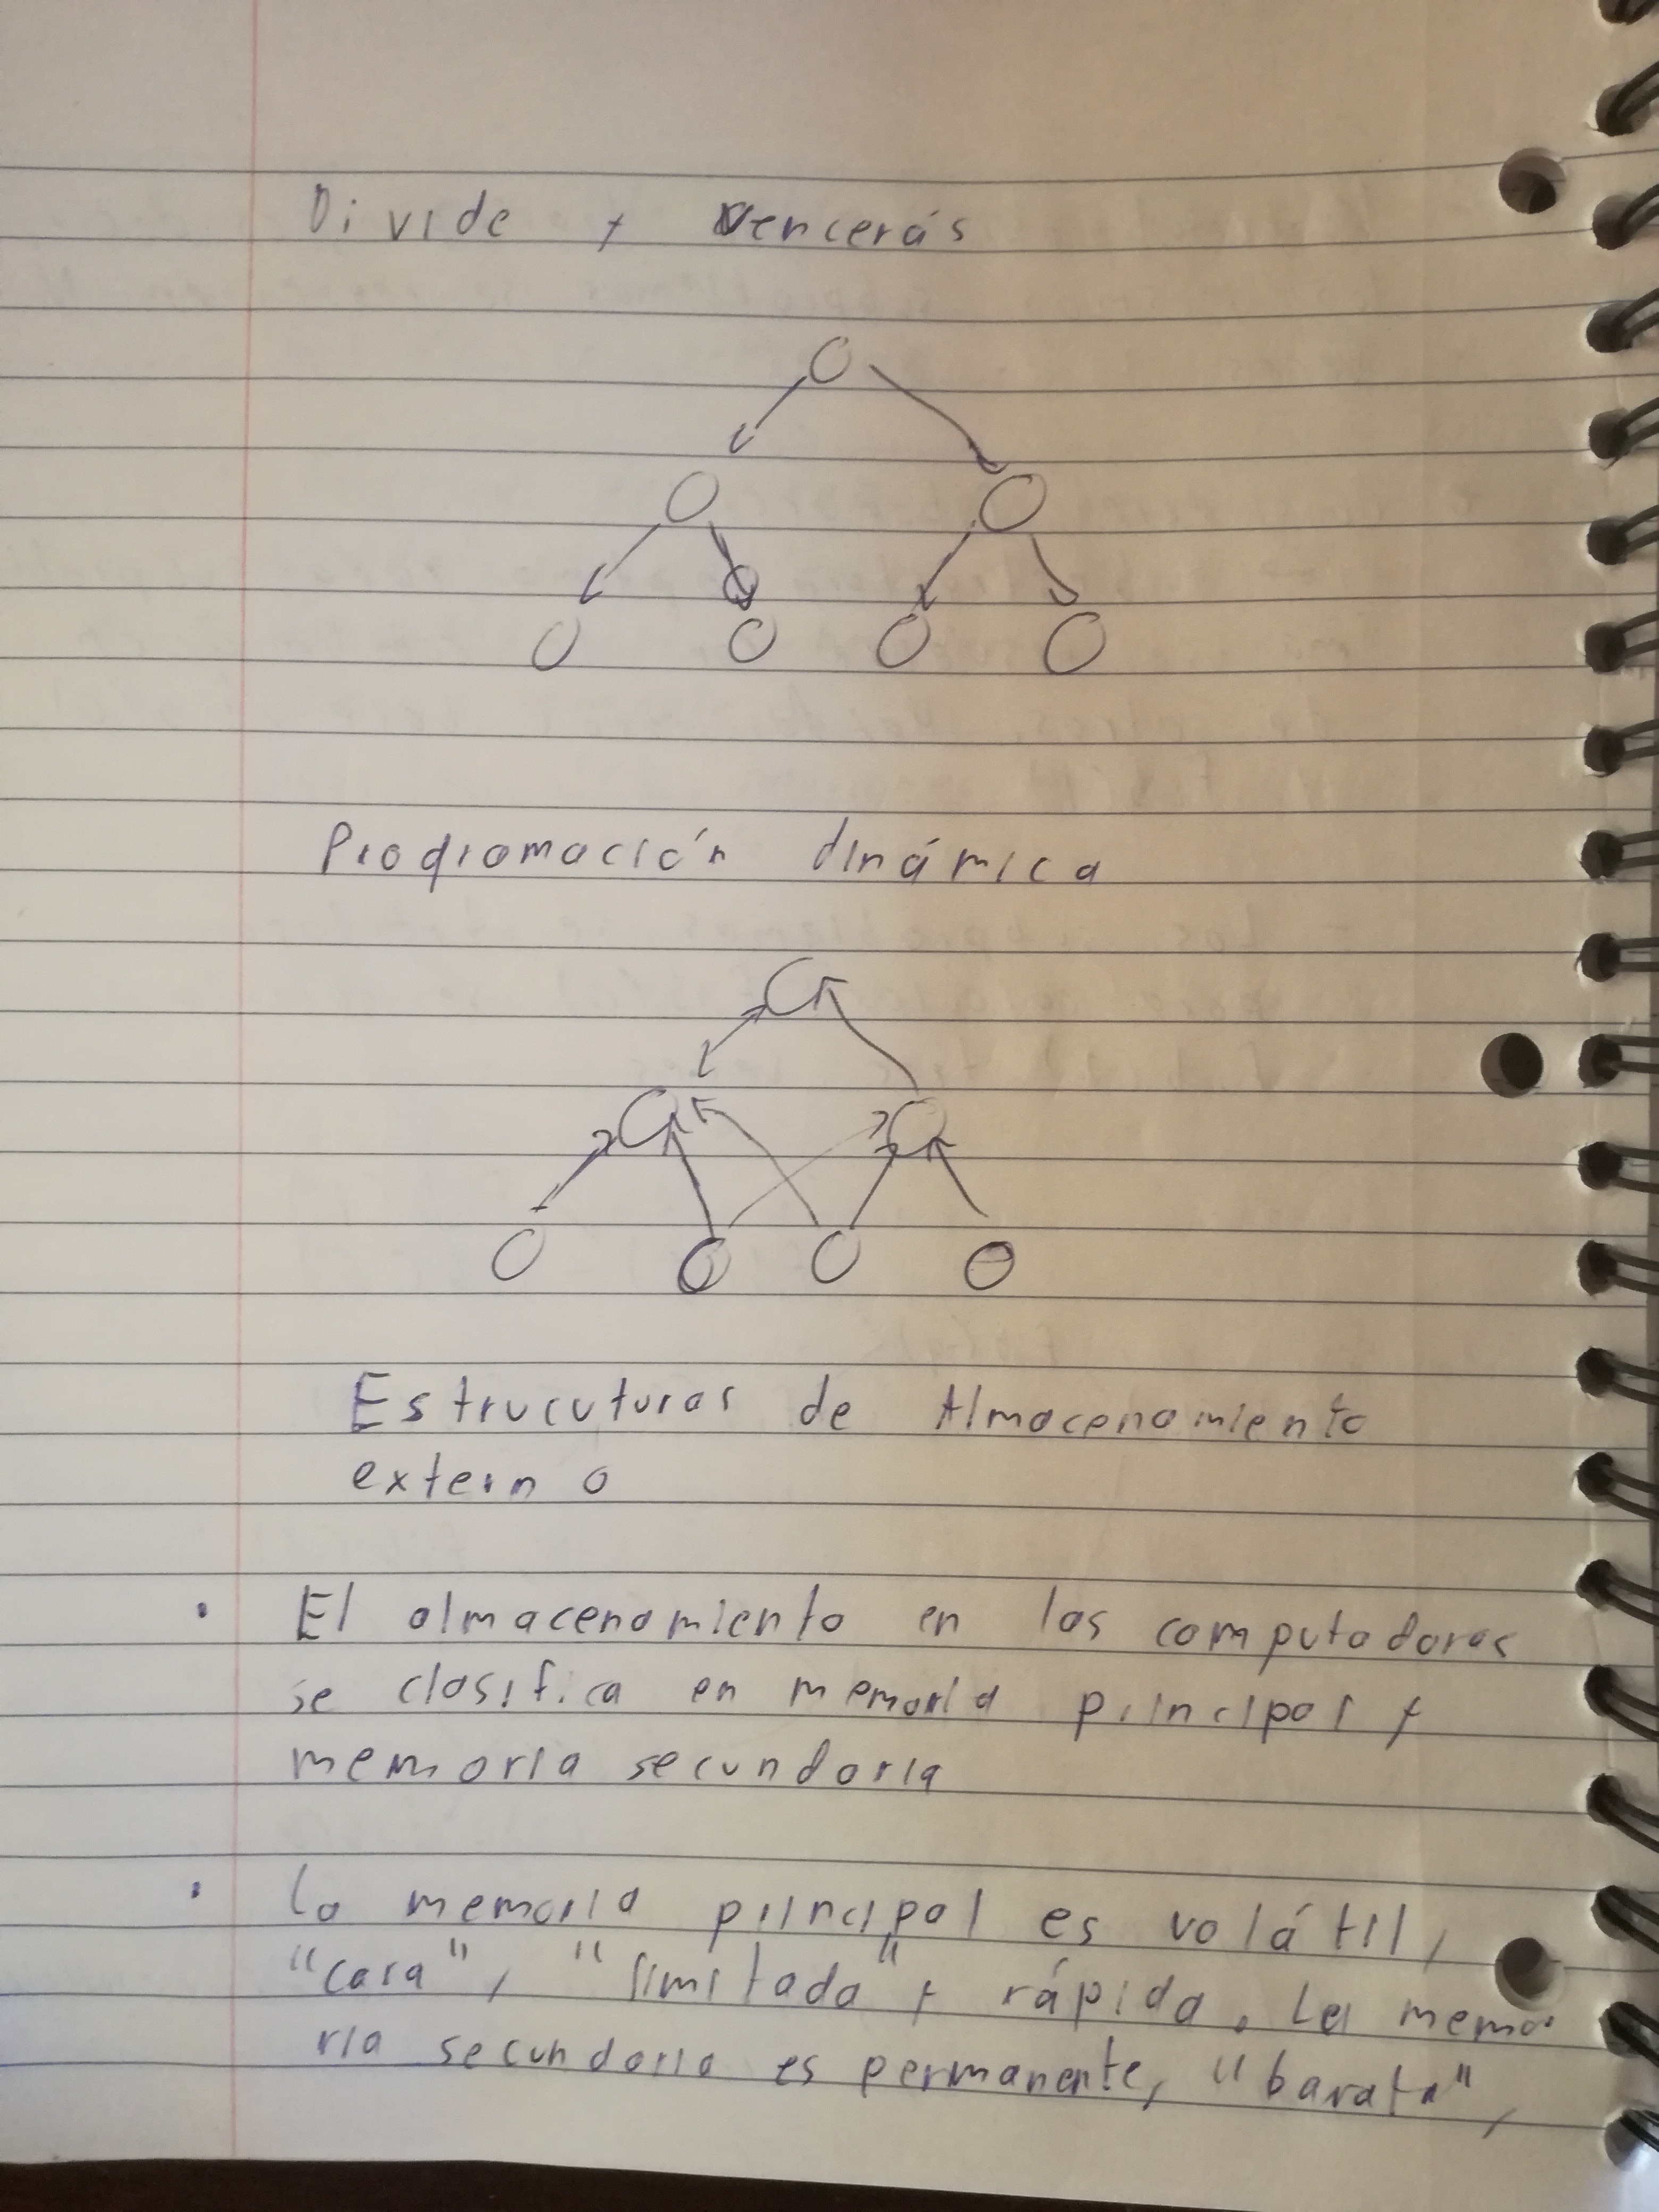 Divide y vencerás
Programación dinámica
Estrucuturas de Almacenamiento
externo
· El almacenamiento en las computadoras
se clasifica en memoria principal y
memoria secundaria
· La memoria principal es volátil,
"cara", "limitada" y rápida. La memo
ria secundaria es permanente, "barata",